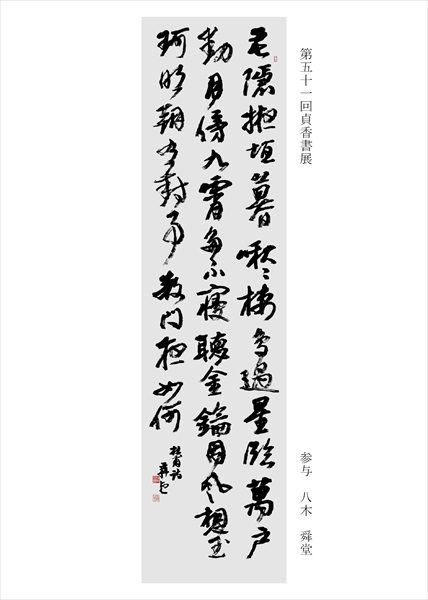 第五十一回貞香書展
参与 八木 舜堂
花隠掖垣暮啾々棲鳥過星臨萬戸
動月傍九霄多不寢聴金鑰因風想玉
珂明朝有封事數問夜如何
杜甫詩
舜堂